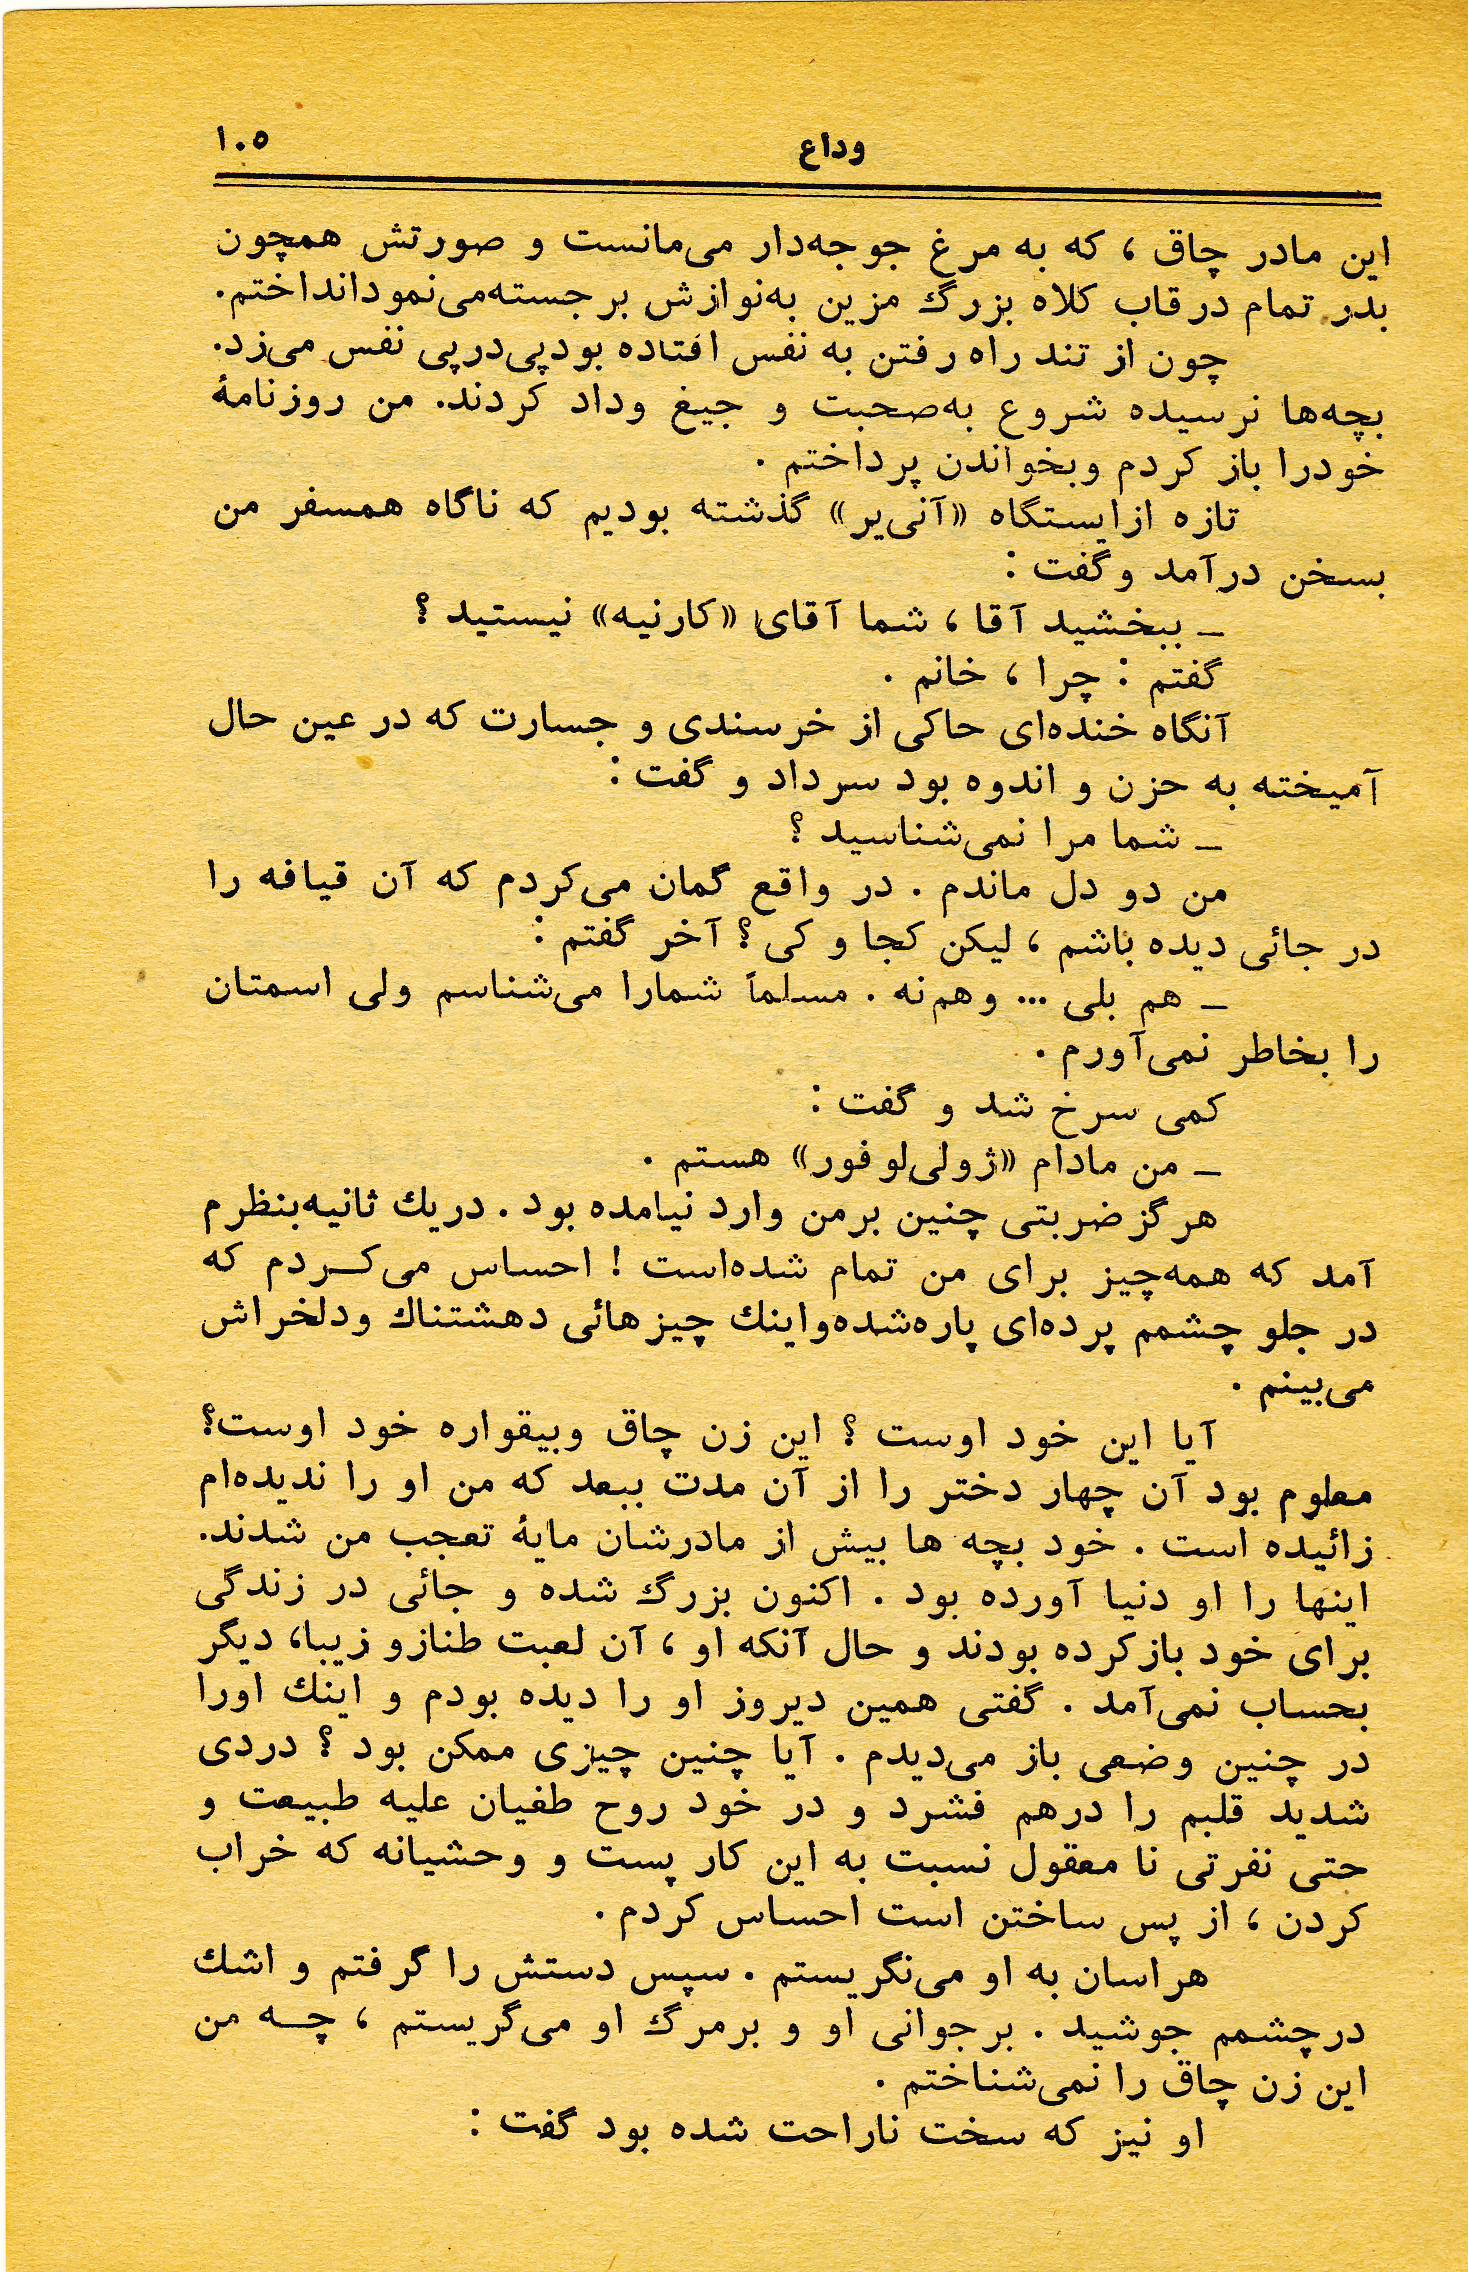 وداع ۱۰۵
این مادر چاق ، که به مرغ جوجه‌دار می‌مانست و صورتش همچون
بدر تمام درقاب کلاه بزرگ مزین به‌نوازش برجسته‌می‌نمودانداختم.
چون از تند راه رفتن به نفس افتاده بودپی‌درپی نفس می‌زد.
بچه‌ها نرسیده شروع به‌صحبت و جیغ وداد کردند. من روزنامهٔ
خودرا باز کردم وبخواندن پرداختم .
تازه ازایستگاه «آنی‌یر» گذشته بودیم که ناگاه همسفر من
بسخن درآمد وگفت :
ـ ببخشید آقا ، شما آقای «کارنیه» نیستید ؟
گفتم : چرا ، خانم .
آنگاه خنده‌ای حاکی از خرسندی و جسارت که در عین حال
آمیخته به حزن و اندوه بود سرداد و گفت :
ـ شما مرا نمی‌شناسید ؟
من دو دل ماندم . در واقع گمان می‌کردم که آن قیافه را
در جائی دیده باشم ، لیکن کجا و کی ؟ آخر گفتم :
ـ هم بلی ... وهم‌نه . مسلماً شمارا می‌شناسم ولی اسمتان
را بخاطر نمی‌آورم .
کمی سرخ شد و گفت :
ـ من مادام «ژولی‌لوفور» هستم .
هرگز ضربتی چنین برمن وارد نیامده بود . دریك ثانیه‌بنظرم
آمد که همه‌چیز برای من تمام شده‌است ! احساس می‌کـردم که
در جلو چشمم پرده‌ای پاره‌شده‌واینك چیزهائی دهشتناك ودلخراش
می‌بینم .
آیا این خود اوست ؟ این زن چاق وبیقواره خود اوست؟
معلوم بود آن چهار دختر را از آن مدت ببعد که من او را ندیده‌ام
زائیده است . خود بچه ها بیش از مادرشان مایهٔ تعجب من شدند.
اینها را او دنیا آورده بود . اکنون بزرگ شده و جائی در زندگی
برای خود بازکرده بودند و حال آنکه او ، آن لعبت طنازو زیبا، دیگر
بحساب نمی‌آمد . گفتی همین دیروز او را دیده بودم و اینك اورا
در چنین وضعی باز می‌دیدم . آیا چنین چیزی ممکن بود ؟ دردی
شدید قلبم را درهم فشرد و در خود روح طغیان علیه طبیعت و
حتی نفرتی نا معقول نسبت به این کار پست و وحشیانه که خراب
کردن ، از پس ساختن است احساس کردم .
هراسان به او می‌نگریستم . سپس دستش را گرفتم و اشك
درچشمم جوشید . برجوانی او و برمرگ او می‌گریستم ، چـه من
این زن چاق را نمی‌شناختم .
او نیز که سخت ناراحت شده بود گفت :